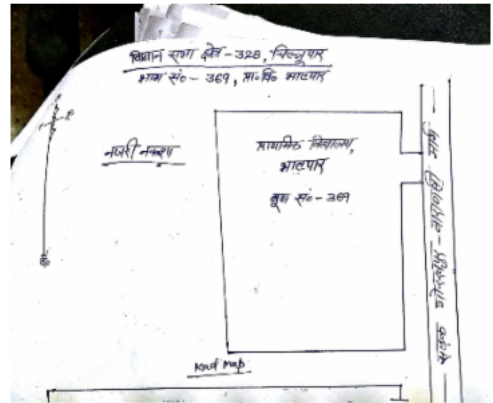 विधान सभा क्षेत्र - 328, चिल्लूपार
भाग सं० - 369, प्रा० वि० भाटपार
नजरी नक्शा
प्राथमिक विद्यालय,
भाटपार
बूथ सं० - 369
Road Map